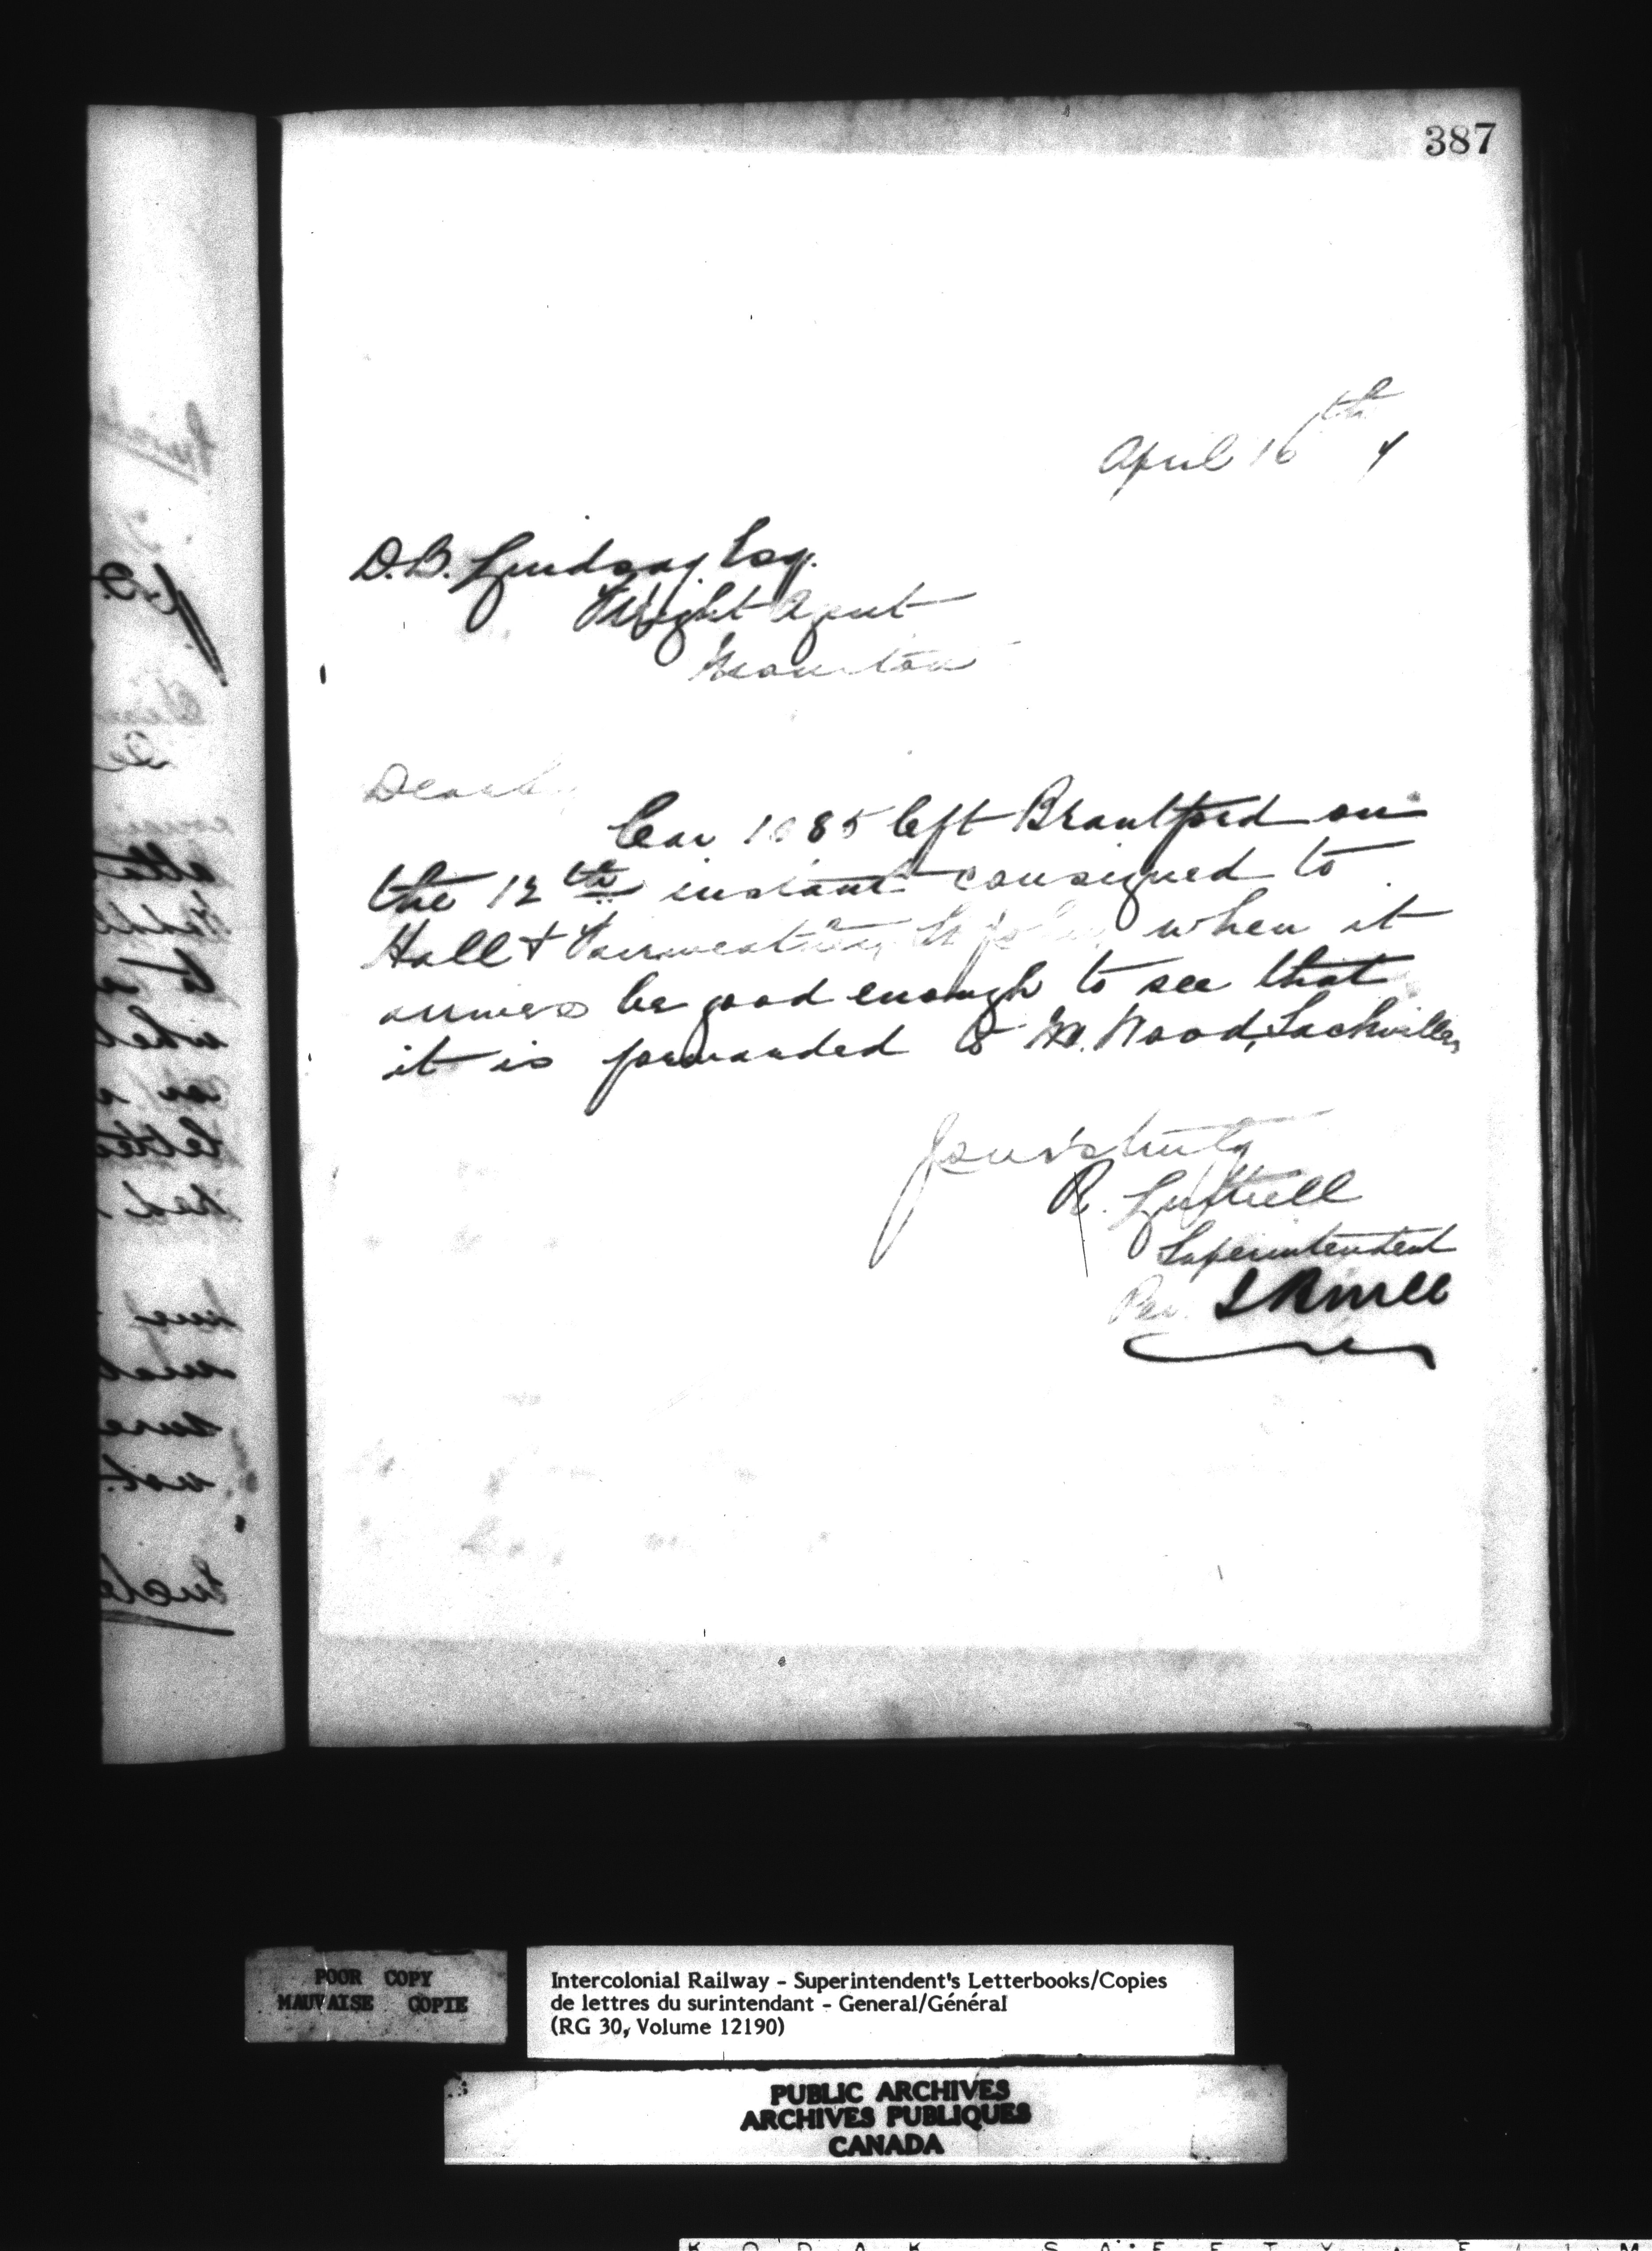 387
April 16th
D.B. Lindsay Esq.
Freight Agent
Moncton
Dear Sir
Car 1085 left Brantford on
the 12th instant consigned to
Hall & Fairweather, St John, when it
arrives be good enough to see that
it is forwarded to M. Wood, Sackville,
Yours truly
R. Luttrell
Superintendent
Per
POOR COPY
MAUVAISE COPIE
Intercolonial Railway - Superintendent's Letterbooks/Copies
de lettres du surintendant - General/Général
(RG 30, Volume 12190)
PUBLIC ARCHIVES
ARCHIVES PUBLIQUES
CANADA